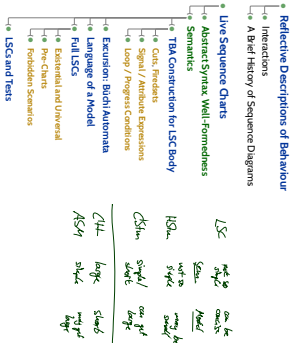 Reflective Descriptions of Behaviour
Interactions
A Brief History of Sequence Diagrams
Live Sequence Charts
Abstract Syntax, Well-Formedness
Semantics
TBA Construction for LSC Body
Cuts, Firedsets
Signal / Attribute Expressions
Loop / Progress Conditions
Excursion: Büchi Automata
Language of a Model
Full LSCs
Existential and Universal
Pre-Charts
Forbidden Scenarios
LSCs and Tests
LSC not so simple can be concise
Sem Model
not so simple may be
simple/short can get large
large short
ASM simple may get large